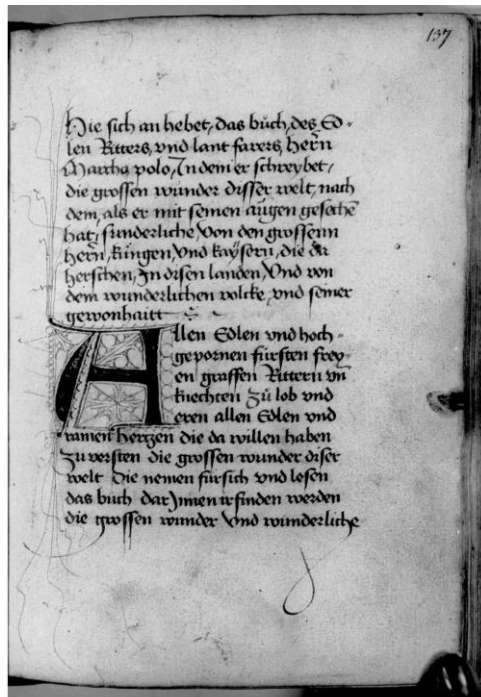 137
Hie sich an hebet, das bůch, des Ed-
len Ritters, vnd lant farers, Hern̄
Marcho polo, In dem er schreybet,
die grossen wunder disser welt, nach
dem, als er mit seinen augen gesechē
hat, sunderliche, Von den grossenn
hern̄, kůngen, Vnd kaÿsern, die da
herschen, In disen landen, Vnd von
dem wunderlichen volcke, vnd seiner
gewonhaitt
Allen Edlen vnd hoch-
gepornen fürsten frey-
en graffen Rittern vn̄
knechten Zů lob vnd
eren allen Edlen vnd
rainen hertzen die da willen haben
Zu versten die grossen wunder diser
welt Die nemen fürsich vnd lesen
das bůch dar Jnnen ir finden werden
die grossen wunder Vnd wunderliche